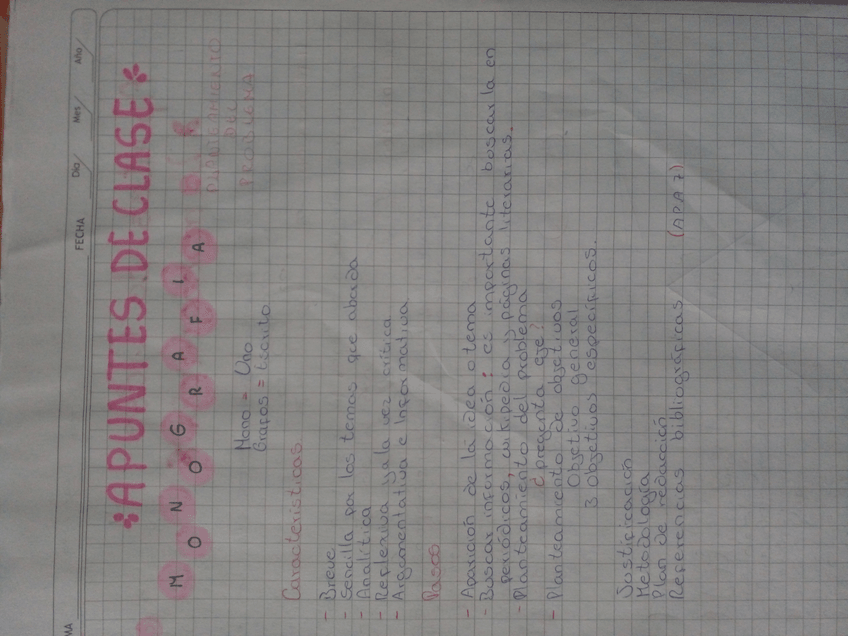 MA
FECHA
Día / Mes / Año
APUNTES DE CLASE
MONOGRAFIA
PLANTEAMIENTO
DEL
PROBLEMA
Mono = Uno
Grafos = Escrito
Características.
- Breve
- Sencilla por los temas que aborda
- Analítica
- Reflexiva y a la vez crítica
- Argumentativa e Informativa
Pasos
- Aparición de la idea o tema
- Buscar información: es importante buscarla en
periódicos, wikipedia y páginas literarias.
- Planteamiento del problema
¿pregunta eje?
- Planteamiento de objetivos
Objetivo General
3 objetivos específicos.
Justificación
Metodología
Plan de redacción
Referencias bibliográficas (APA 7)